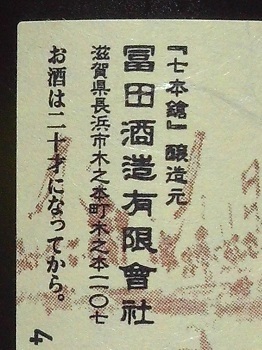 『七本鎗』醸造元
冨田酒造有限會社
滋賀県長浜市木之本町木之本一一〇七
お酒は二十才になってから。
4